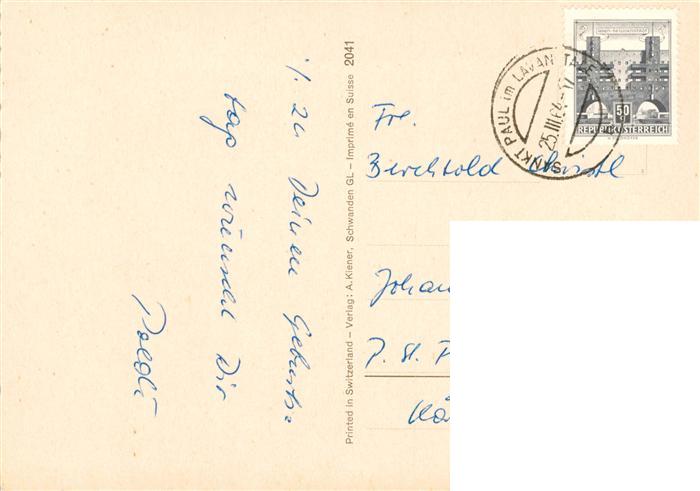 '/. Zu Deinem Geburts=
tag wünscht Dir
Poldi
Printed in Switzerland – Verlag: A. Kiener, Schwanden GL – Imprimé en Suisse 2041
SANKT PAUL im LAVANTTALE
25.III.64
50
REPUBLIK ÖSTERREICH
Frl.
Berchtold Christl
Johan
P. St. P
Kä